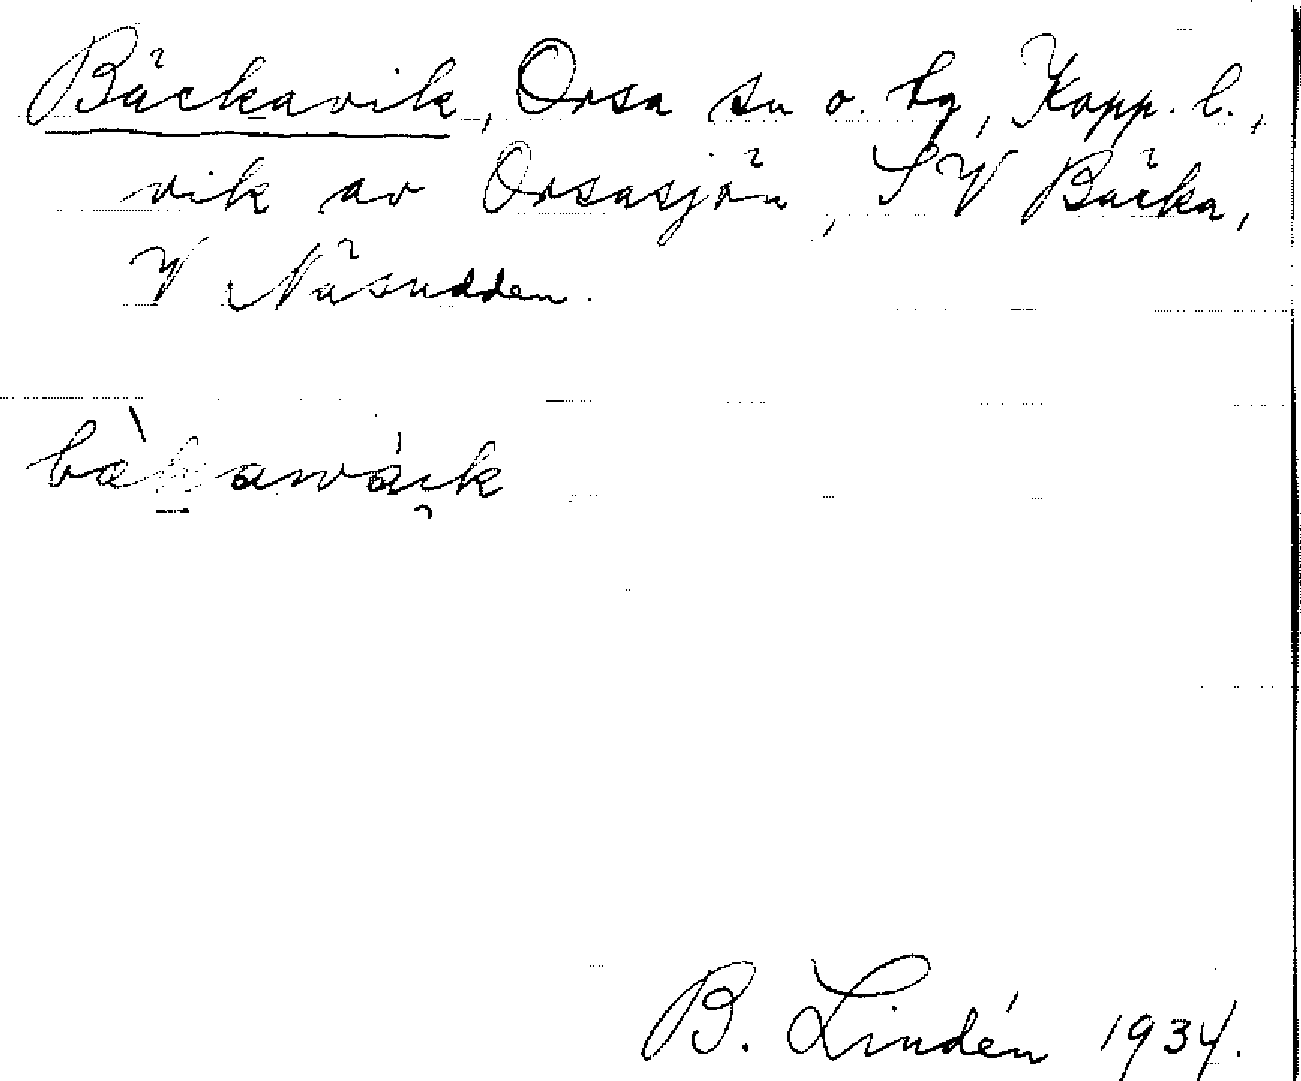 Bäckavik, Orsa sn o. tg, Kopp. l.,
vik av Orsasjön, SV Bäcka,
V Näsudden.
B. Lindén 1934.